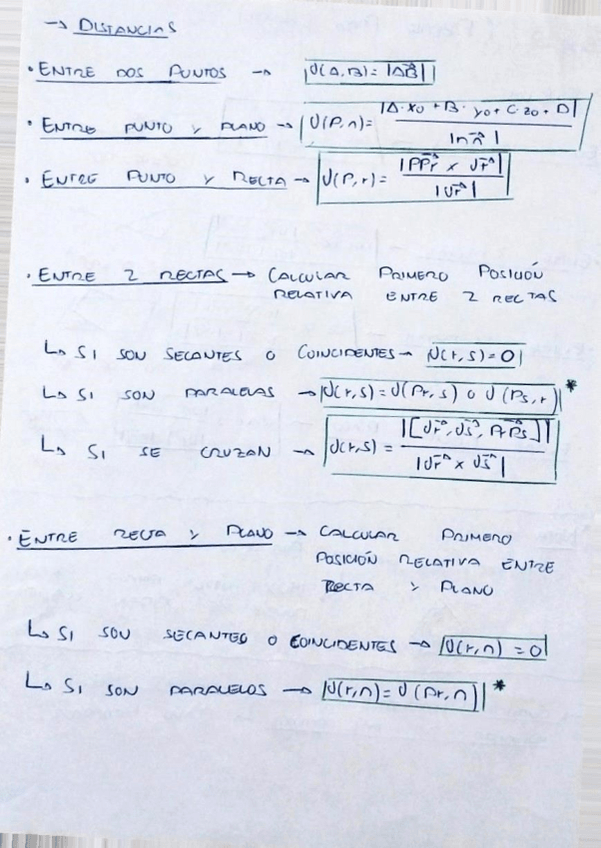 → DISTANCIAS
• ENTRE DOS PUNTOS → d(A,B) = |AB⃗|
• ENTRE PUNTO Y PLANO → d(P,π) = |A·x₀ + B·y₀ + C·z₀ + D| / |n⃗|
• ENTRE PUNTO Y RECTA → d(P,r) = |PPr⃗ × dr⃗| / |dr⃗|
• ENTRE 2 RECTAS → CALCULAR PRIMERO POSICIÓN
RELATIVA ENTRE 2 RECTAS
↳ SI SON SECANTES O COINCIDENTES → d(r,s) = 0
↳ SI SON PARALELAS → d(r,s) = d(Pr,s) o d(Ps,r) *
↳ SI SE CRUZAN → d(r,s) = |[dr⃗, ds⃗, PrPs⃗]| / |dr⃗ × ds⃗|
• ENTRE RECTA Y PLANO → CALCULAR PRIMERO
POSICIÓN RELATIVA ENTRE
RECTA Y PLANO
↳ SI SON SECANTES O COINCIDENTES → d(r,π) = 0
↳ SI SON PARALELOS → d(r,π) = d(Pr,π) *